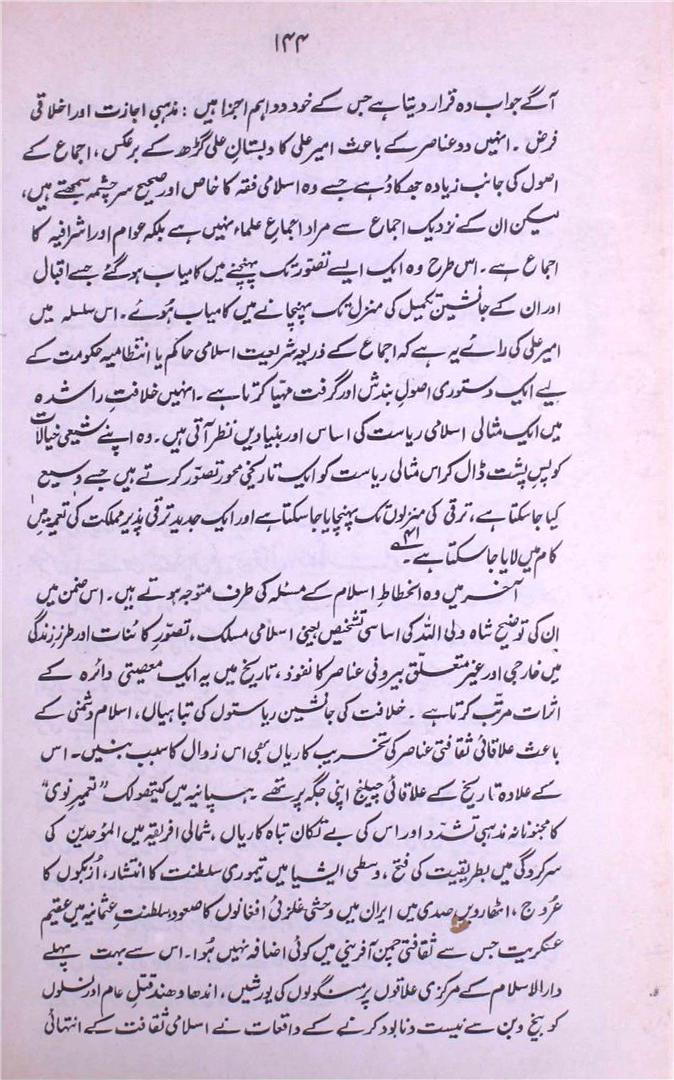 ۱۴۴
آگے جواب دہ قرار دیتا ہے جس کے خود دو اہم اجزا ہیں : مذہبی اجازت اور اخلاقی
فرض ۔ انہیں دو عناصر کے باعث امیر علی کا دبستانِ علی گڑھ کے برعکس ، اجماع کے
اصول کی جانب زیادہ جھکاؤ ہے جسے وہ اسلامی فقہ کا خاص اور صحیح سرچشمہ سمجھتے ہیں،
لیکن ان کے نزدیک اجماع سے مراد اجماعِ علماء نہیں ہے بلکہ عوام اور اشرافیہ کا
اجماع ہے ۔ اس طرح وہ ایک ایسے تصوّر تک پہنچنے میں کامیاب ہو گئے جسے اقبال
اور ان کے جانشین تکمیل کی منزل تک پہنچانے میں کامیاب ہُوئے ۔ اس سلسلہ میں
امیر علی کی رائے یہ ہے کہ اجماع کے ذریعہ شریعت اسلامی حاکم یا انتظامیہ حکومت کے
لیے ایک دستوری اصولِ بندش اور گرفت مہیّا کرتا ہے ۔ انہیں خلافتِ راشدہ
میں ایک مثالی اسلامی ریاست کی اساس اور بنیادیں نظر آتی ہیں ۔ وہ اپنے شیعی خیالات
کو پسِ پشت ڈال کر اس مثالی ریاست کو ایک تاریخی محور تصوّر کرتے ہیں جسے وسیع
کیا جا سکتا ہے ، ترقی کی منزلوں تک پہنچایا جا سکتا ہے اور ایک جدید ترقی پذیر مملکت کی تعمیر میں
کام میں لایا جا سکتا ہے ۔
آخر میں وہ انحطاطِ اسلام کے مسئلہ کی طرف متوجہ ہوتے ہیں ۔ اس ضمن میں
ان کی توضیح شاہ ولی اللہ کی اساسی تشخیص یعنی اسلامی مسلک ، تصوّرِ کائنات اور طرزِ زندگی
میں خارجی اور غیر متعلّق بیرونی عناصر کا نفوذ ، تاریخ میں یہ ایک معصیتی دائرہ کے
اثرات مرتّب کرتا ہے ۔ خلافت کی جانشین ریاستوں کی تباہیاں ، اسلام دشمنی کے
باعث علاقائی ثقافتی عناصر کی تخریب کاریاں بھی اس زوال کا سبب بنیں ۔ اس
کے علاوہ تاریخ کے علاقائی چیلنج اپنی جگہ پر تھے ۔ ہسپانیہ میں کیتھولک "تعمیرِ نوی"
کا مجنونانہ مذہبی تشدّد اور اس کی بے تکان تباہ کاریاں ، شمالی افریقہ میں الموّحدین کی
سرکردگی میں بطریقیت کی فتح ، وسطی ایشیا میں تیموری سلطنت کا انتشار ، اُزبکوں کا
عُروج ، اٹھارویں صدی میں ایران میں وحشی غلزئی افغانوں کا صعود، سلطنتِ عثمانیہ میں عقیم
عسکریت جس سے ثقافتی حسن آفرینی میں کوئی اضافہ نہیں ہُوا ۔ اس سے بہت پہلے
دارالاسلام کے مرکزی علاقوں پر منگولوں کی یورشیں ، اندھا دھند قتلِ عام اور نسلوں
کو بیخ و بن سے نیست و نابود کرنے کے واقعات نے اسلامی ثقافت کے انتہائی